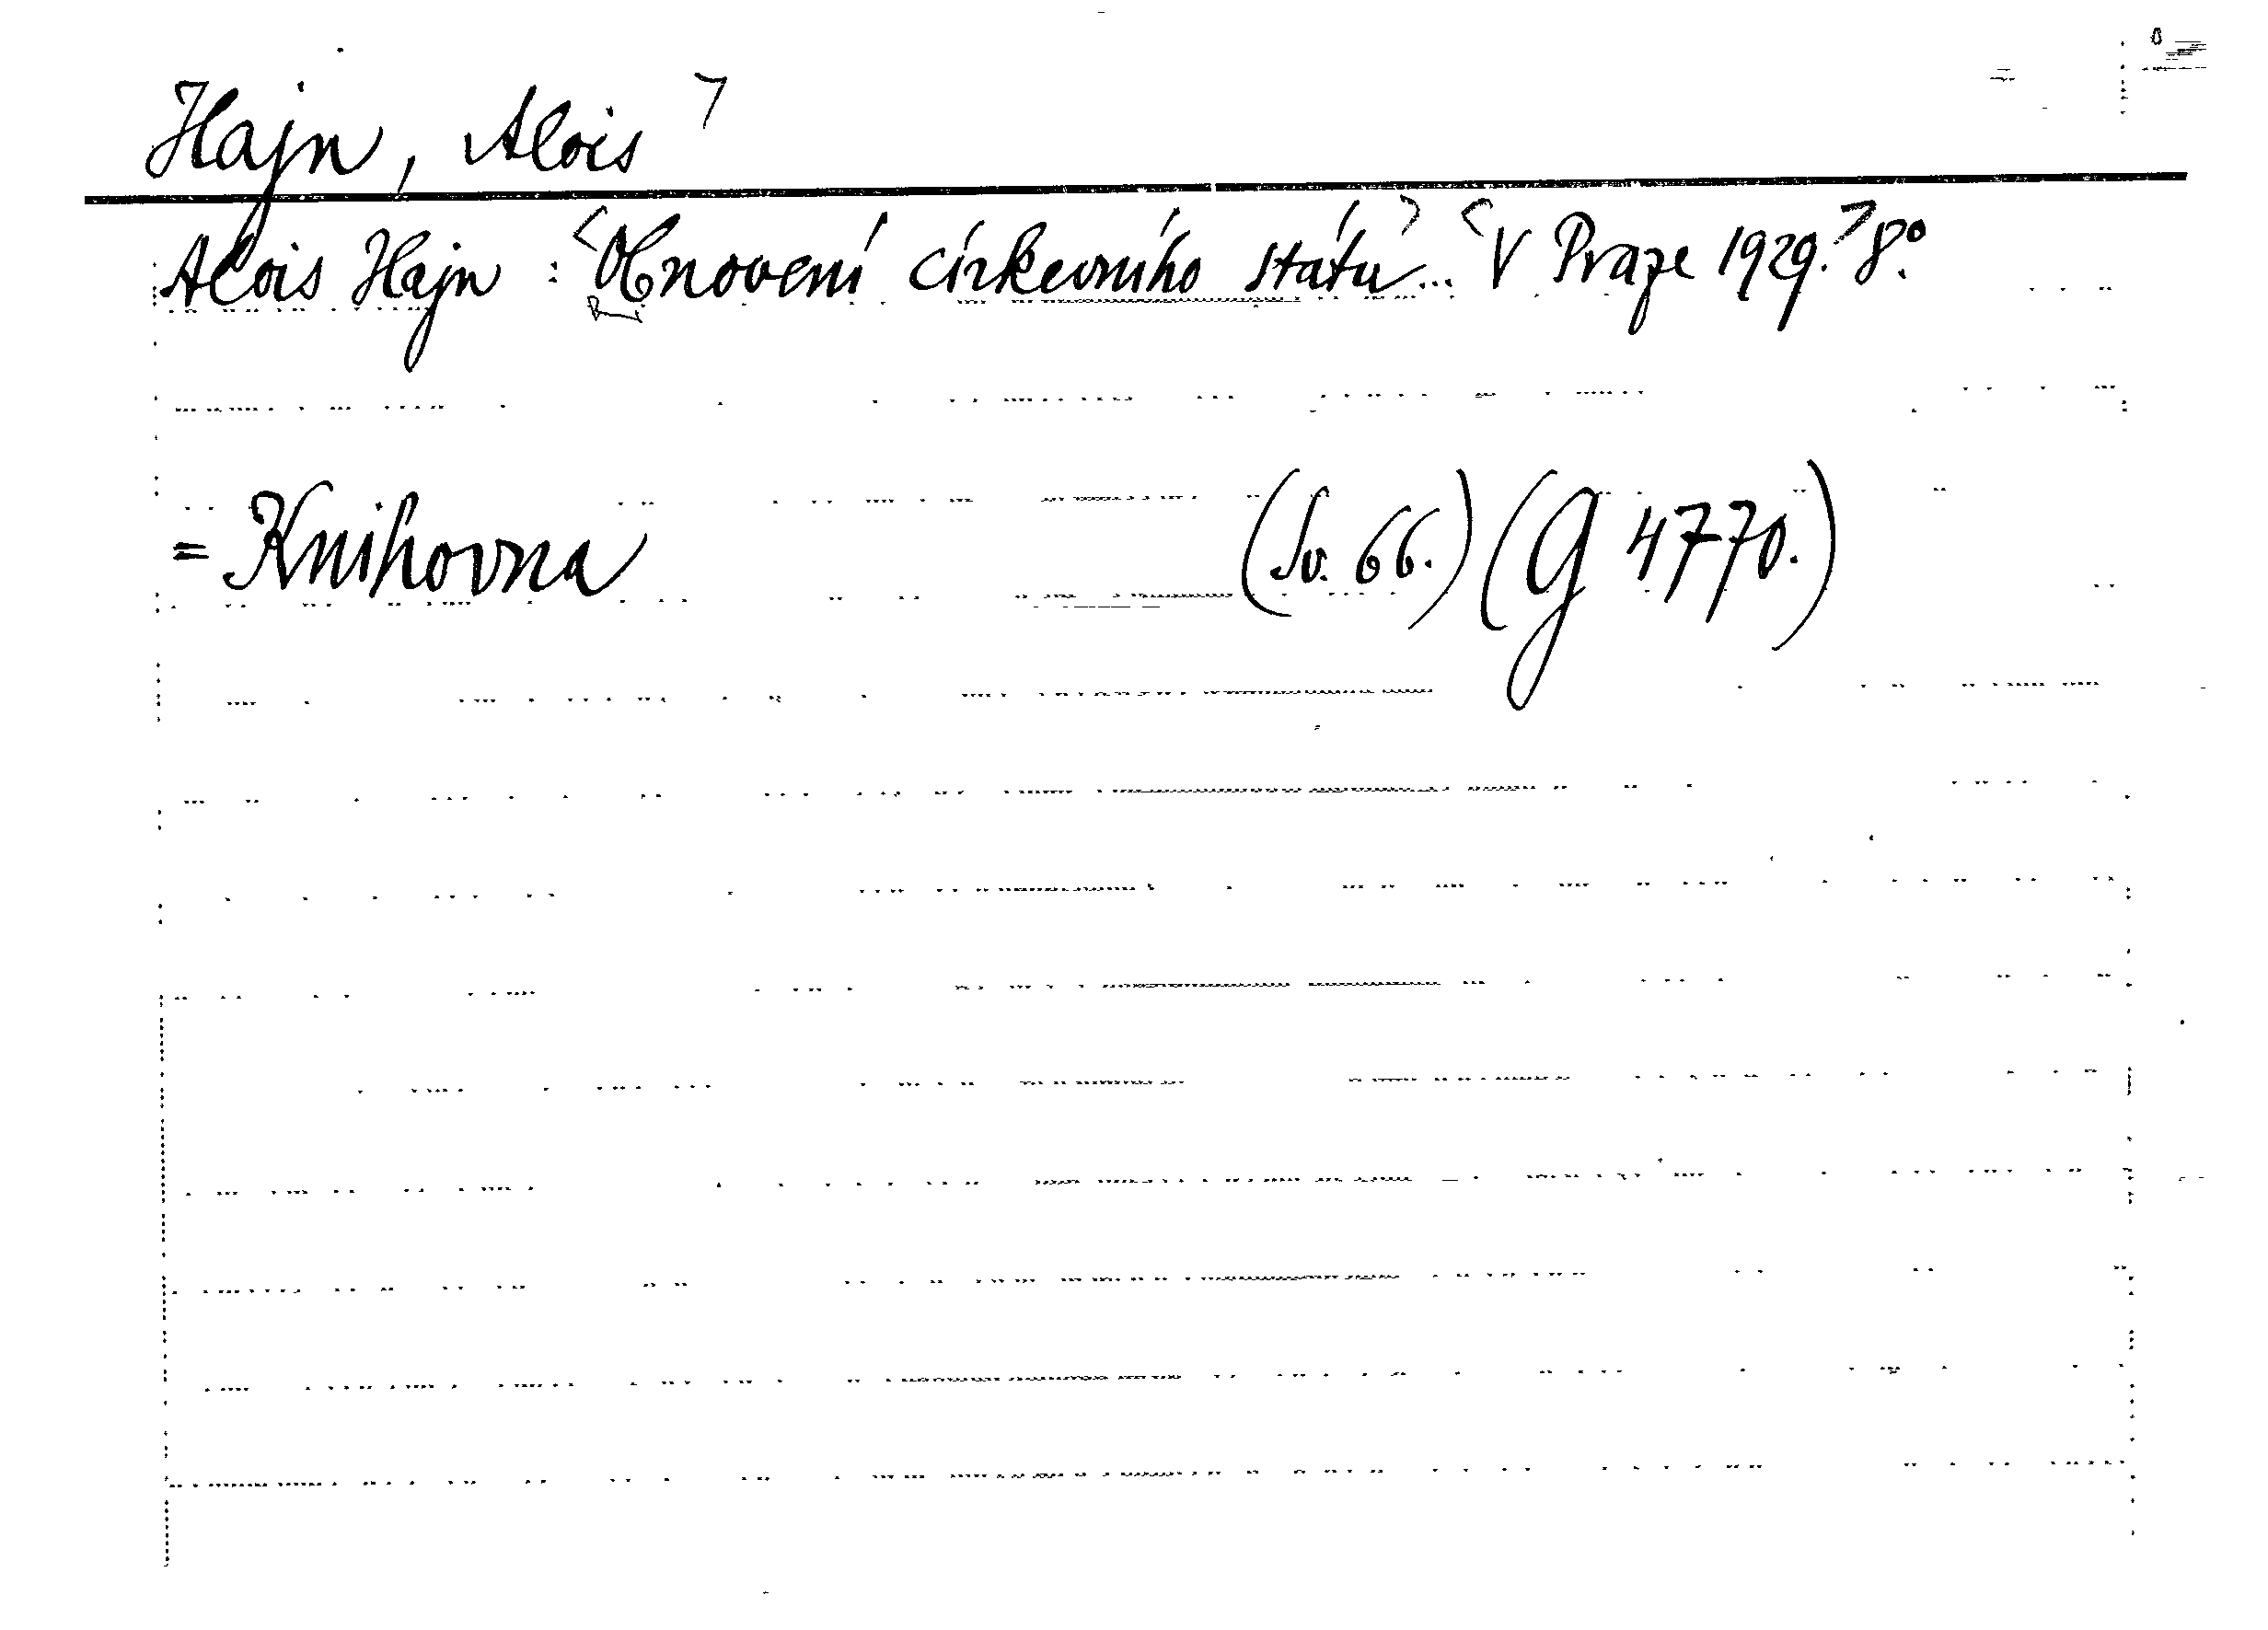 Hajn, Alois
Alois Hajn : Obnovení církevního státu... V Praze 1929. 8°.
= Knihovna (Sv. 66.) (G 4770.)